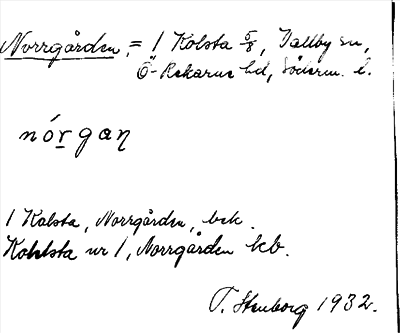 Norrgården, = 1 Kolsta 5/8, Vallby sn,
Ö-Rekarne hd, Söderm. l.
nórgaƞ
1 Kolsta, Norrgården, bek.
Kohlsta nr 1, Norrgården kb.
T. Stenborg 1932.